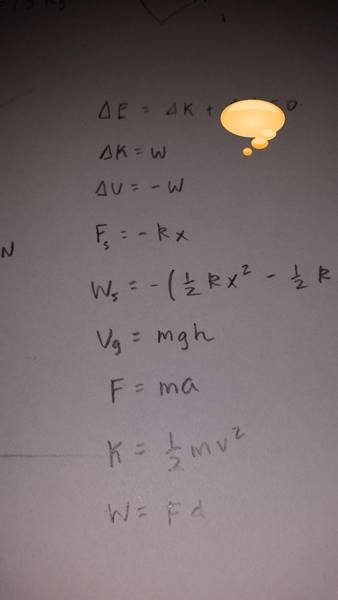 ΔE = ΔK +
ΔK = W
ΔU = -W
N
F_s = - kx
W_s = -(1/2 kx² - 1/2 k
U_g = mgh
F = ma
K = 1/2 mv²
W = Fd